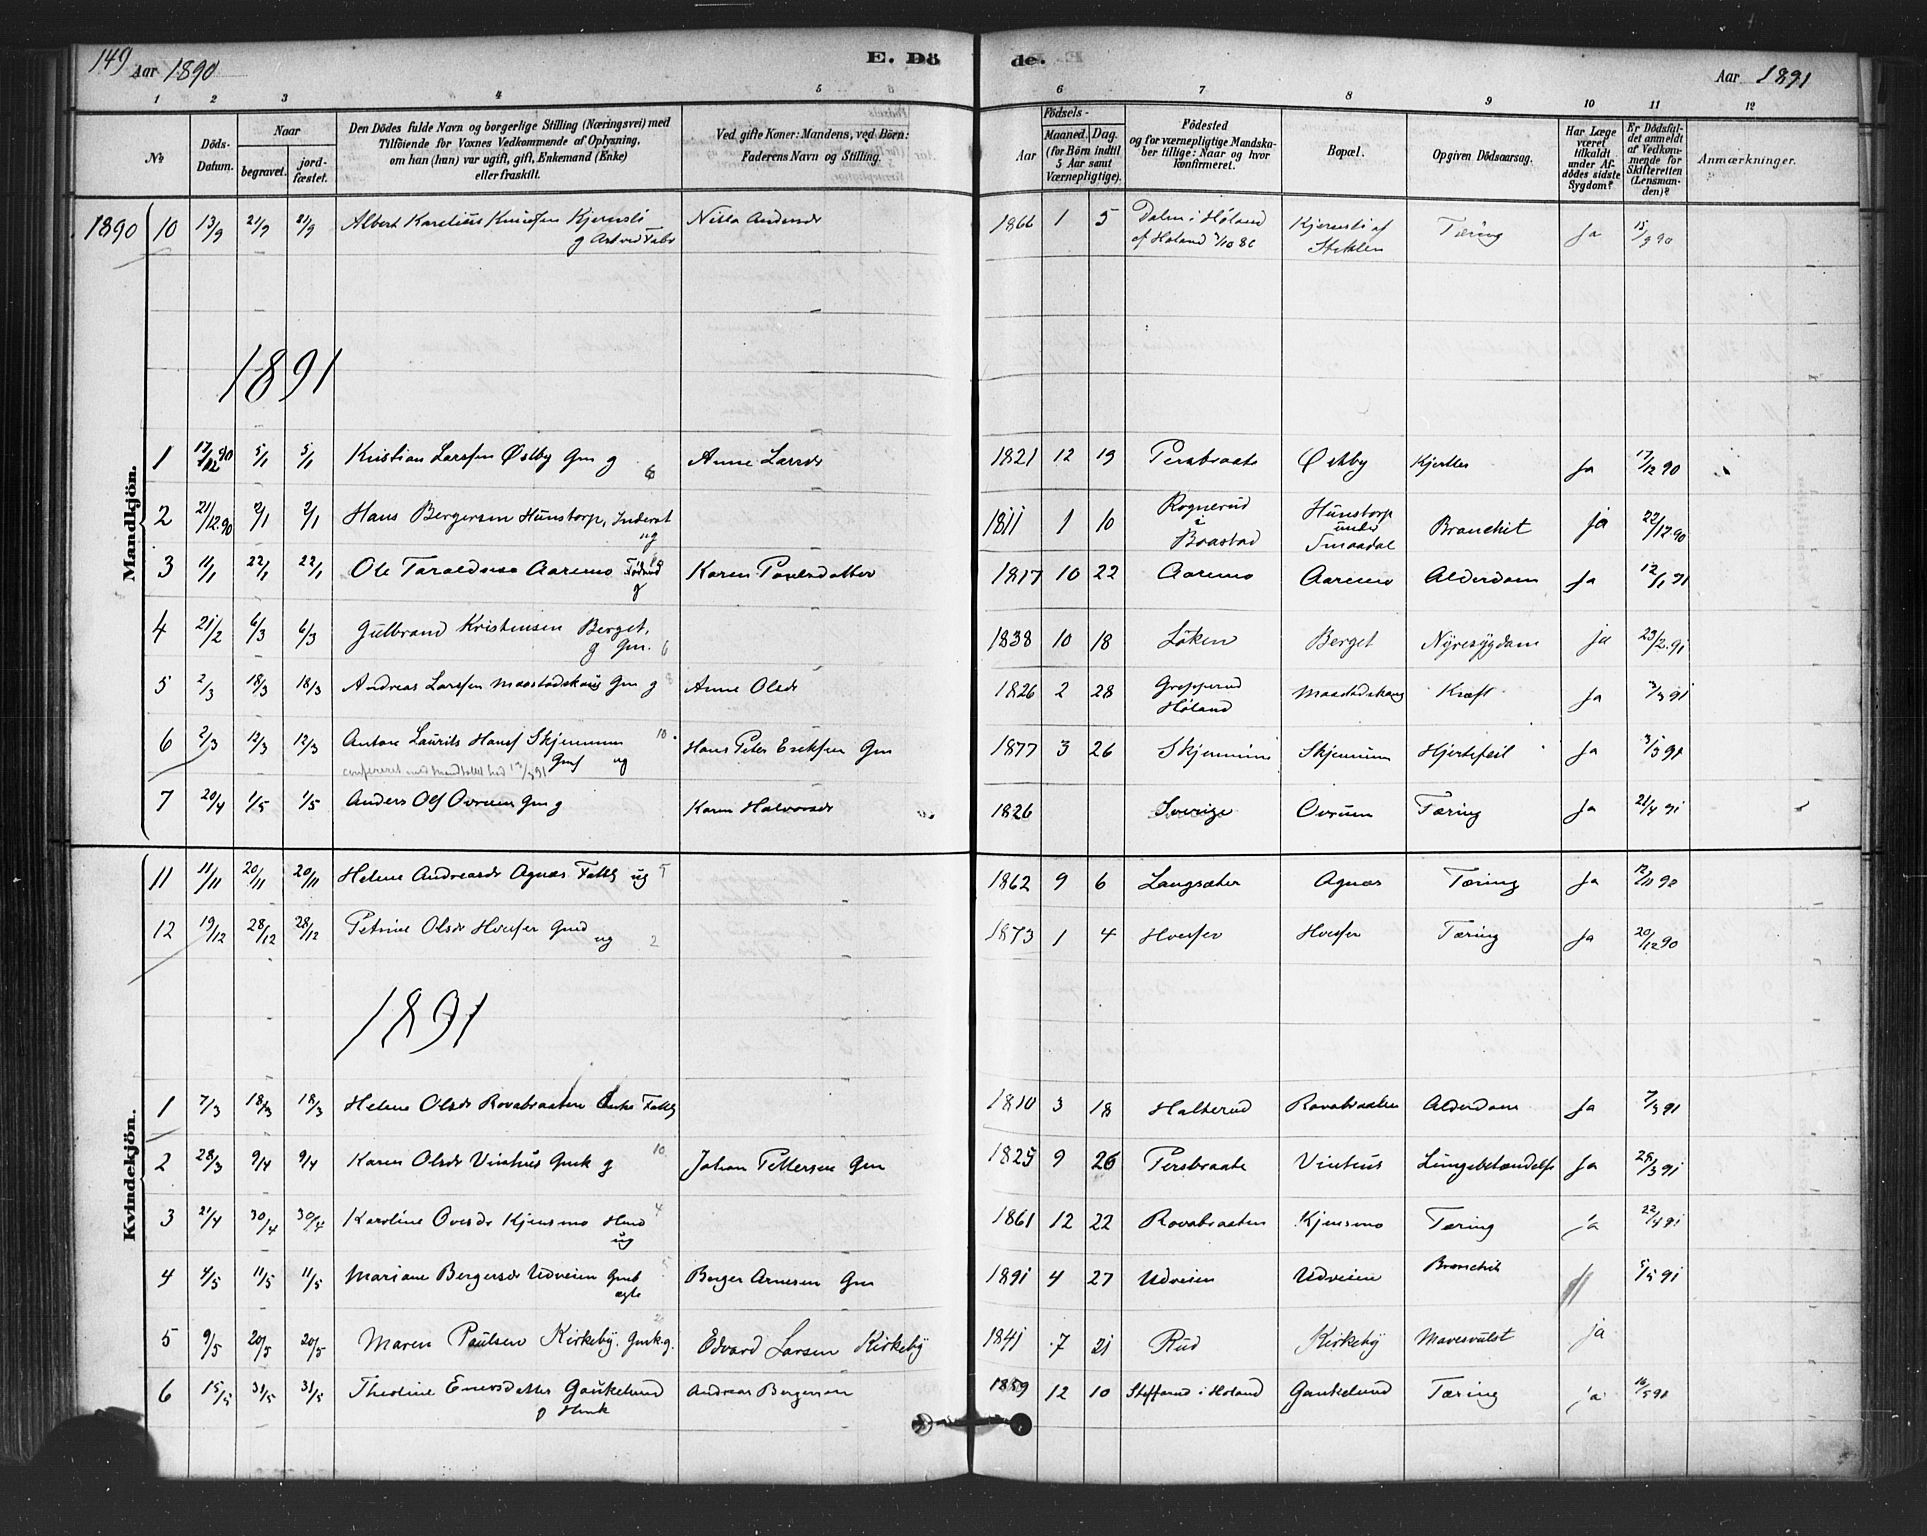 149
Aar 1890
E. Dö
de.
Aar 1891
1 2 3 4 5 6 7 8 9 10 11 12
No
Döds-
Datum.
Naar
begravet.
jord-
fæstet.
Den Dödes fulde Navn og borgerlige Stilling (Næringsvei) med
Tilföiende for Voxnes Vedkommende af Oplysning,
om han (hun) var ugift, gift, Enkemand (Enke)
eller fraskilt.
Ved gifte Koner: Mandens, ved Börn:
Faderens Navn og Stilling.
Födsels-
Aar
Maaned. Dag.
(for Börn indtil
5 Aar samt
Værnepligtige).
Födested
og for værnepligtige Mandska-
ber tillige: Naar og hvor
konfirmeret.
Bopæl.
Opgiven Dödsaarsag.
Har Læge
været
tilkaldt
under Af-
dödes sidste
Sygdom?
Er Dödsfal-
det anmeldt
af Vedkom-
mende for
Skifteretten
(Lensman-
den)?
Anmærkninger.
Mandkjön.
1890 10 13/9 21/9 21/9 Albert Karelius Knudsen Kjernsli Nilla Andersdr 1866 1 5 Dalen i Höland Kjernsli af Tæring Ja 15/9 90
g
af Höland
1891
1 17/12 90 5/1 5/1 Kristian Larssen Østby Gm g Anne Larsdr 1821 12 19 Persbraate Østby Ja 17/12 90
2 21/12.90 2/1 2/1 Hans Bergersen Hunstorp, Inderst ug 1811 1 10 Rognerud i Baastad Hunstorp under Smaadal Bronchit ja 22/12.90
3 11/1 22/1 22/1 Ole Taraldsen Aaremo g Karen Poulsdatter 1817 10 22 Aaremo Aaremo Alderdom Ja 12/1 91
4 21/2 6/3 6/3 Gulbrand Kristensen Berget, g Gm. 6 1838 10 18 Löken Berget Nyresygdom ja 23/2.91
5 2/3 18/3 18/3 Andreas Larssen Maastadshaug Gm g 8 Anne Olsdr 1826 2 28 Höland Maastadshaug Kræft Ja 3/3 91
6 2/3 12/3 12/3 Anton Laurits Hansf Skjennum 10 Hans Peter Eriksen Gm 1877 3 26 Skjennum Skjennum Hjertefeil Ja 3/3 91
Gmf ug
7 20/4 1/5 1/5 Anders Olf Ovrum Gm g Karen Halvorsdr 1826 Sverige Ovrum Tæring Ja 21/4 91
Kvindekjön.
11 11/11 20/11 20/11 Helene Andreasdr Agnæs Fattig ug 5 1862 9 6 Langsæter Agnæs Tæring Ja 12/11 90
12 19/12 28/12 28/12 Petrine Olsdr Hverfer Gmd ug 2 1873 1 4 Hverfer Hverfer Tæring Ja 20/12 90
1891
1 7/3 18/3 18/3 Helene Olsdr Rovabraaten Enke Fattig 1810 3 18 Halterud Rovabraaten Alderdom Ja 7/3 91
2 28/3 9/4 9/4 Karen Olsdr Vinthus Gmk g 10 Johan Pettersen Gm 1825 9 26 Persbraate Vinthus Lungebetændelse Ja 28/3 91
3 21/4 30/4 30/4 Karoline Ovesdr Kjensmo Hmd ug 4 1861 12 22 Rovabraaten Kjensmo Tæring ja 22/4 91
4 4/5 11/5 11/5 Mariane Bergersdr Udveien Gmb ægte 5 Berger Arnesen Gm 1891 4 27 Udveien Udveien Bronchit 5/5 91
5 9/5 20/5 20/5 Maren Paulsen Kirkeby. Gmk. g. Edvard Larsen Kirkeby 1841 7 21 Rud Kirkeby Mavesvulst ja
6 15/5 31/5 31/5 Theoline Enersdatter Gaukelund Andreas Bergersen 1859 12 10 i Höland Gaukelund Tæring ja 16/5 91
g Hmk